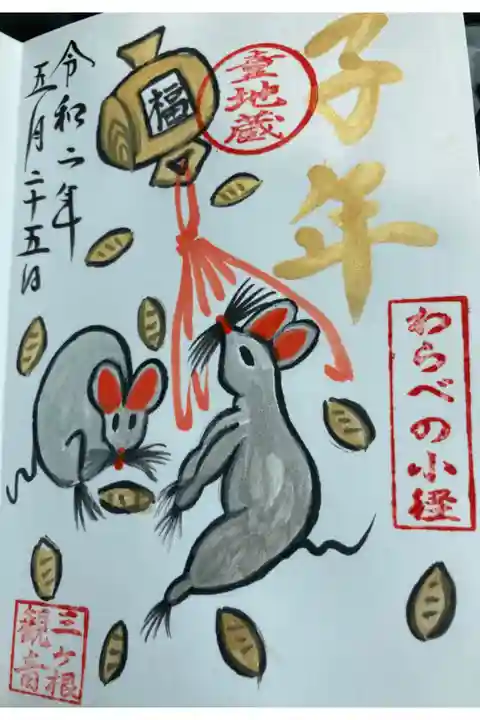 子年
童地蔵
福
令和二年
五月二十五日
わらべの小径
三ヶ根
観音